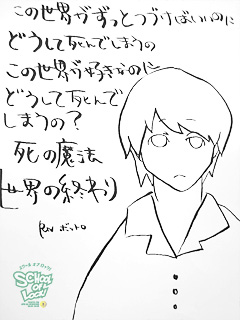 この世界がずっとつづけばいいのに
どうして死んでしまうの
この世界が好きなのに
どうして死んで
しまうの?
死の魔法
世界の終わり
RN ボットロ
SCHOOL
OF
LOCK!